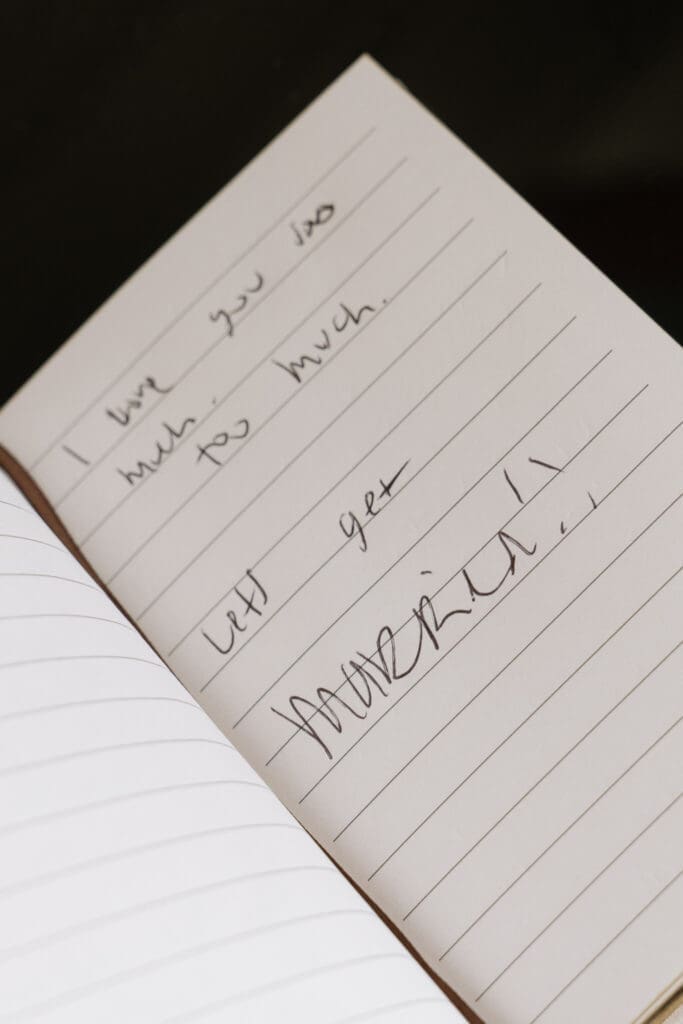 I love you soo
much. too much.
Lets get
married!!